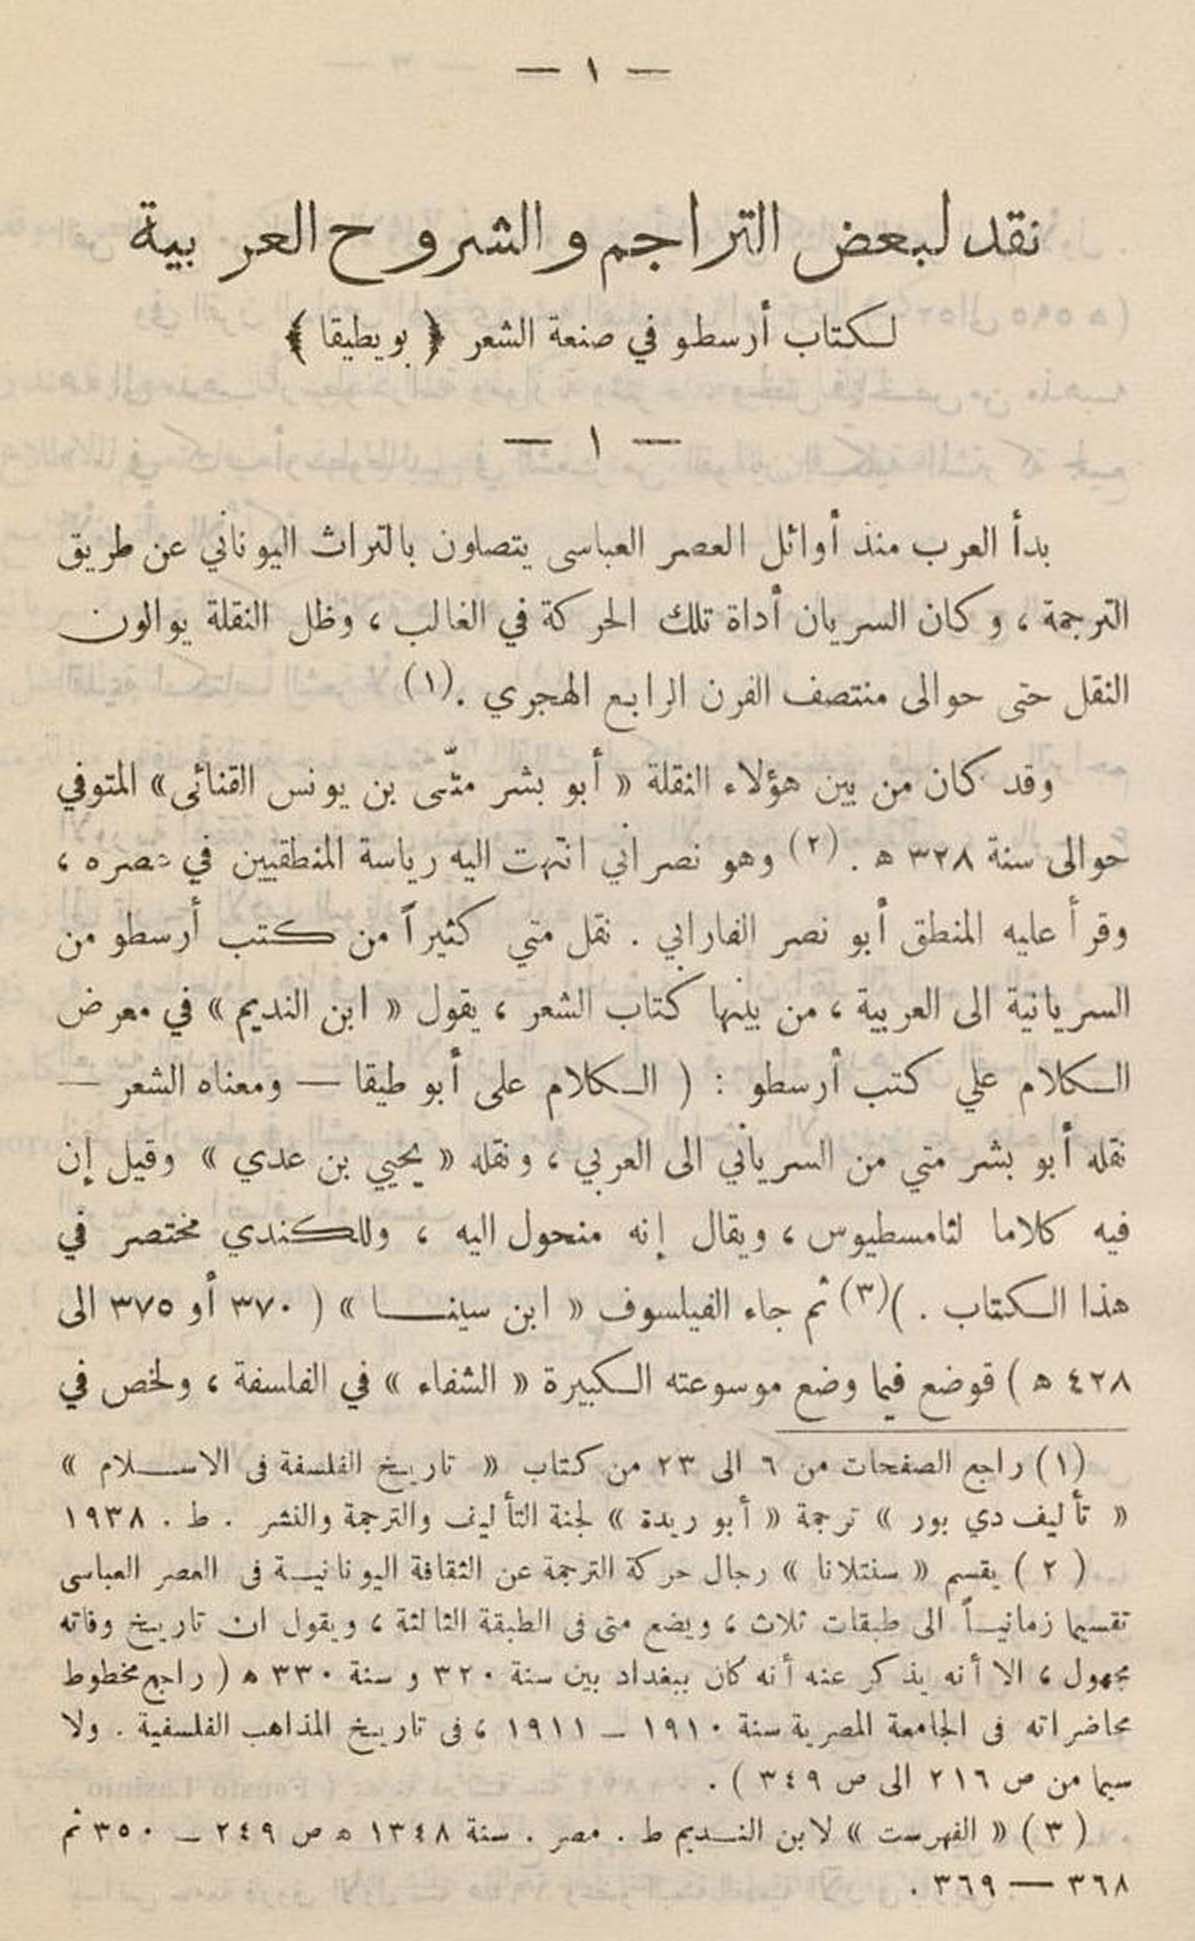 — ١ —
نقد لبعض التراجم والشروح العربية
لكتاب أرسطو في صنعة الشعر ﴿ بويطيقا ﴾
— ١ —
بدأ العرب منذ أوائل العصر العباسى يتصلون بالتراث اليوناني عن طريق
الترجمة ، وكان السريان أداة تلك الحركة في الغالب ، وظل النقلة يوالون
النقل حتى حوالى منتصف القرن الرابع الهجري . (١)
وقد كان من بين هؤلاء النقلة « أبو بشر متّى بن يونس القنائى » المتوفي
حوالى سنة ٣٢٨ ه . (٢) وهو نصراني انتهت اليه رياسة المنطقيين في عصره ،
وقرأ عليه المنطق أبو نصر الفارابي . نقل متي كثيراً من كتب أرسطو من
السريانية الى العربية ، من بينها كتاب الشعر ، يقول « ابن النديم » في معرض
الكلام علي كتب أرسطو : ( الكلام على أبو طيقا — ومعناه الشعر —
نقله أبو بشر متي من السرياني الى العربي ، ونقله « يحيي بن عدي » وقيل إن
فيه كلاما لثامسطيوس ، ويقال إنه منحول اليه ، وللكندي مختصر في
هذا الكتاب . )(٣) ثم جاء الفيلسوف « ابن سينا » ( ٣٧٠ أو ٣٧٥ الى
٤٢٨ ه ) قوضع فيما وضع موسوعته الكبيرة « الشفاء » في الفلسفة ، ولخص في
(١) راجع الصفحات من ٦ الى ٢٣ من كتاب « تاريخ الفلسفة فى الاسلام »
« تأليف دي بور » ترجمة « أبو ريدة » لجنة التأليف والترجمة والنشر . ط . ١٩٣٨
( ٢ ) يقسم « سنتلانا » رجال حركة الترجمة عن الثقافة اليونانية فى العصر العباسى
تقسيما زمانياً الى طبقات ثلاث ، ويضع متى فى الطبقة الثالثة ، ويقول ان تاريخ وفاته
مجهول ، الا أنه يذكر عنه أنه كان ببغداد بين سنة ٣٢٠ و سنة ٣٣٠ ه ( راجع مخطوط
محاضراته فى الجامعة المصرية سنة ١٩١٠ — ١٩١١ ، فى تاريخ المذاهب الفلسفية . ولا
سيما من ص ٢١٦ الى ص ٣٤٩ ) .
( ٣ ) « الفهرست » لابن النديم ط . مصر . سنة ١٣٤٨ ه ص ٢٤٩ — ٣٥٠ ثم
٣٦٨ — ٣٦٩ .